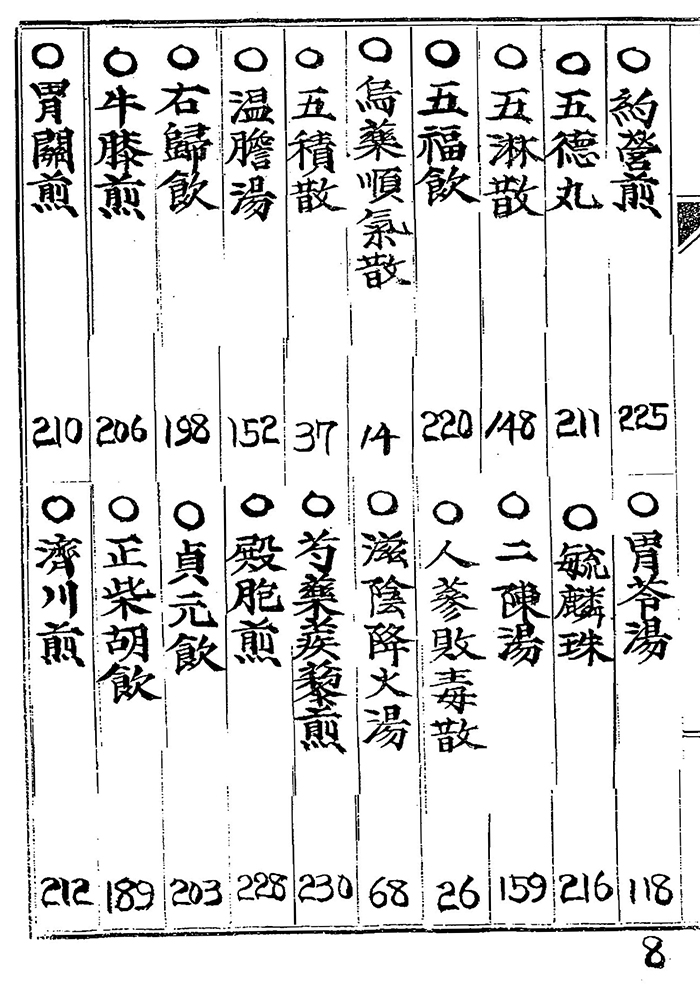 ○約營煎 225
○五德丸 211
○五淋散 148
○五福飮 220
○烏藥順氣散 14
○五積散 37
○温膽湯 152
○右歸飮 198
○牛膝煎 206
○胃關煎 210
○胃苓湯 118
○毓麟珠 216
○二陳湯 159
○人蔘敗毒散 26
○滋陰降火湯 68
○芍藥蒺藜煎 230
○殿胞煎 228
○貞元飮 203
○正柴胡飮 189
○濟川煎 212
8